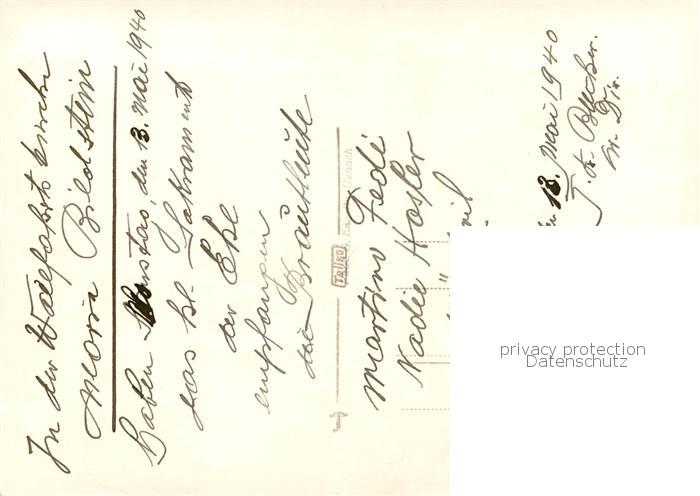 In der Wallfahrtskirche
Maria Bildstein
haben Montag, den 13. Mai 1940
das hl. Sakrament
der Ehe
empfangen
die Brautleute
Martino Fedi
Nadie Hasler
13. Mai 1940
Felko
privacy protection
Datenschutz